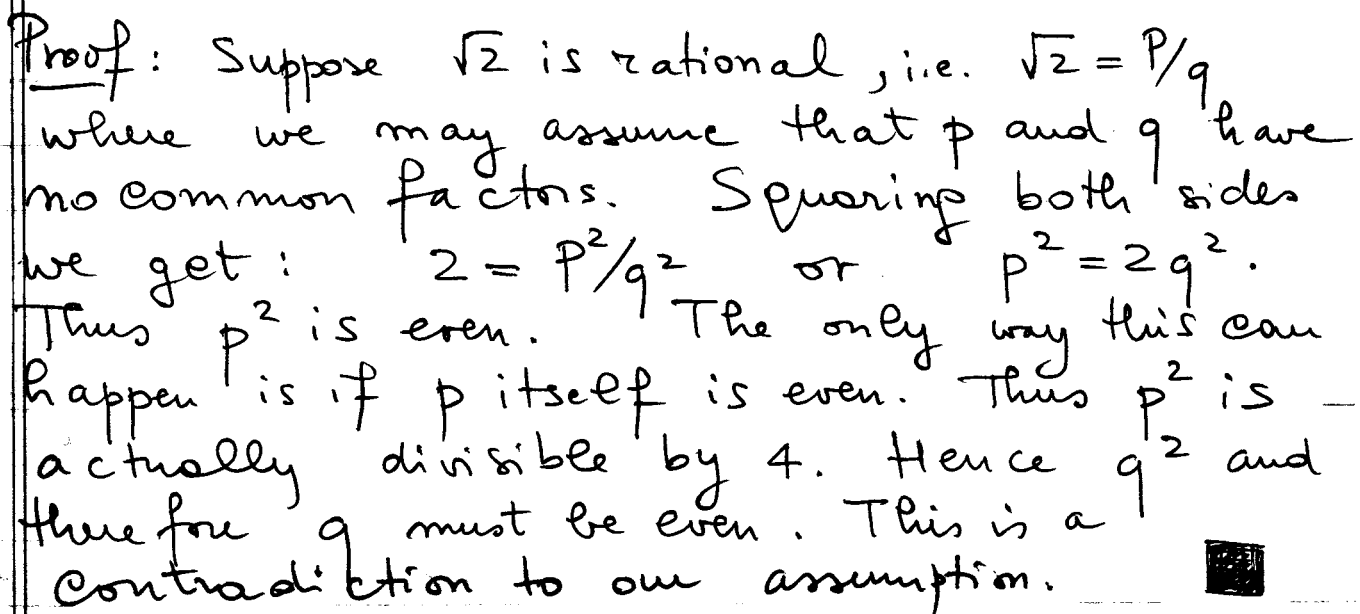 Proof: Suppose √2 is rational, i.e. √2 = P/q
where we may assume that p and q have
no common factors. Squaring both sides
we get: 2 = P²/q² or p² = 2q².
Thus p² is even. The only way this can
happen is if p itself is even. Thus p² is
actually divisible by 4. Hence q² and
therefore q must be even. This is a
contradiction to our assumption.